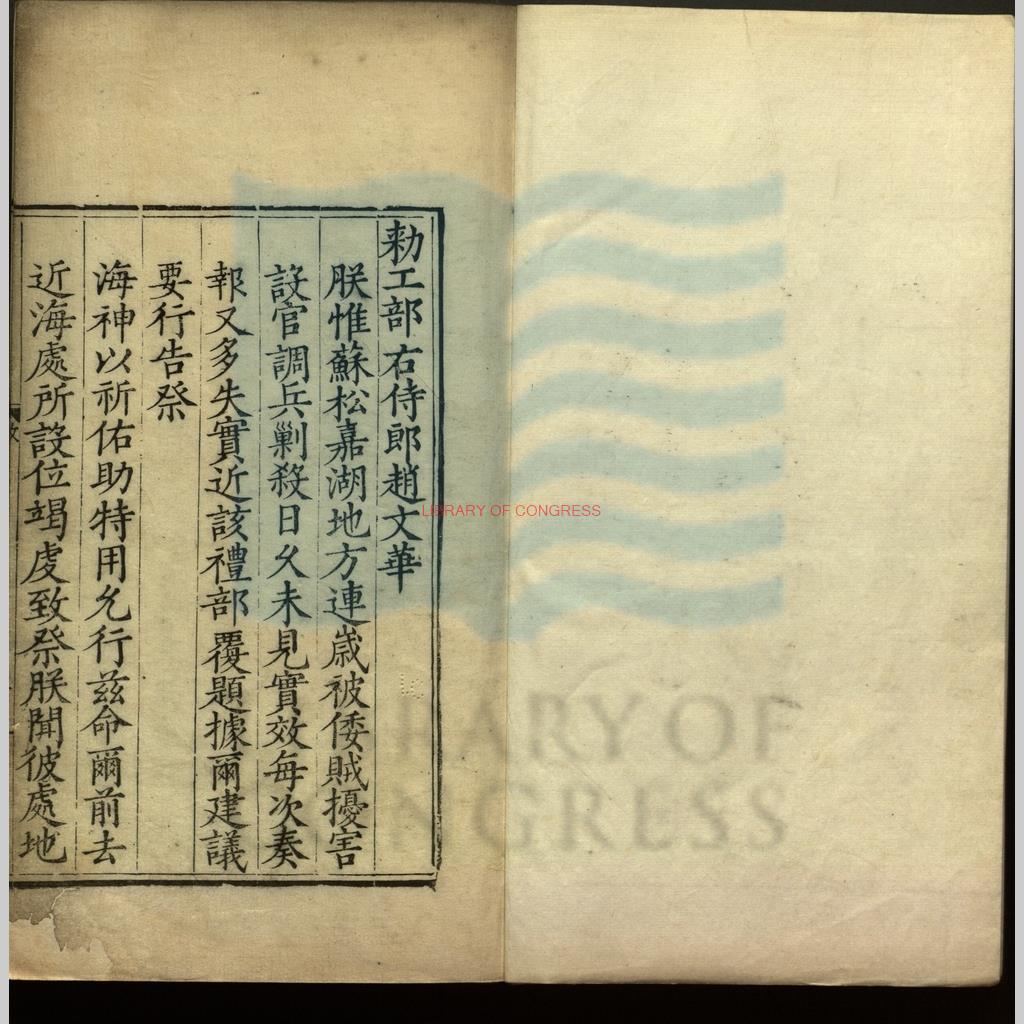 勑工部右侍郎趙文華
朕惟蘇松嘉湖地方連歲被倭賊擾害
設官調兵剿殺日乆未見實效每次奏
報又多失實近該禮部覆題據爾建議
要行告祭
海神以祈佑助特用允行茲命爾前去
近海處所設位竭虔致祭朕聞彼處地
LIBRARY OF CONGRESS